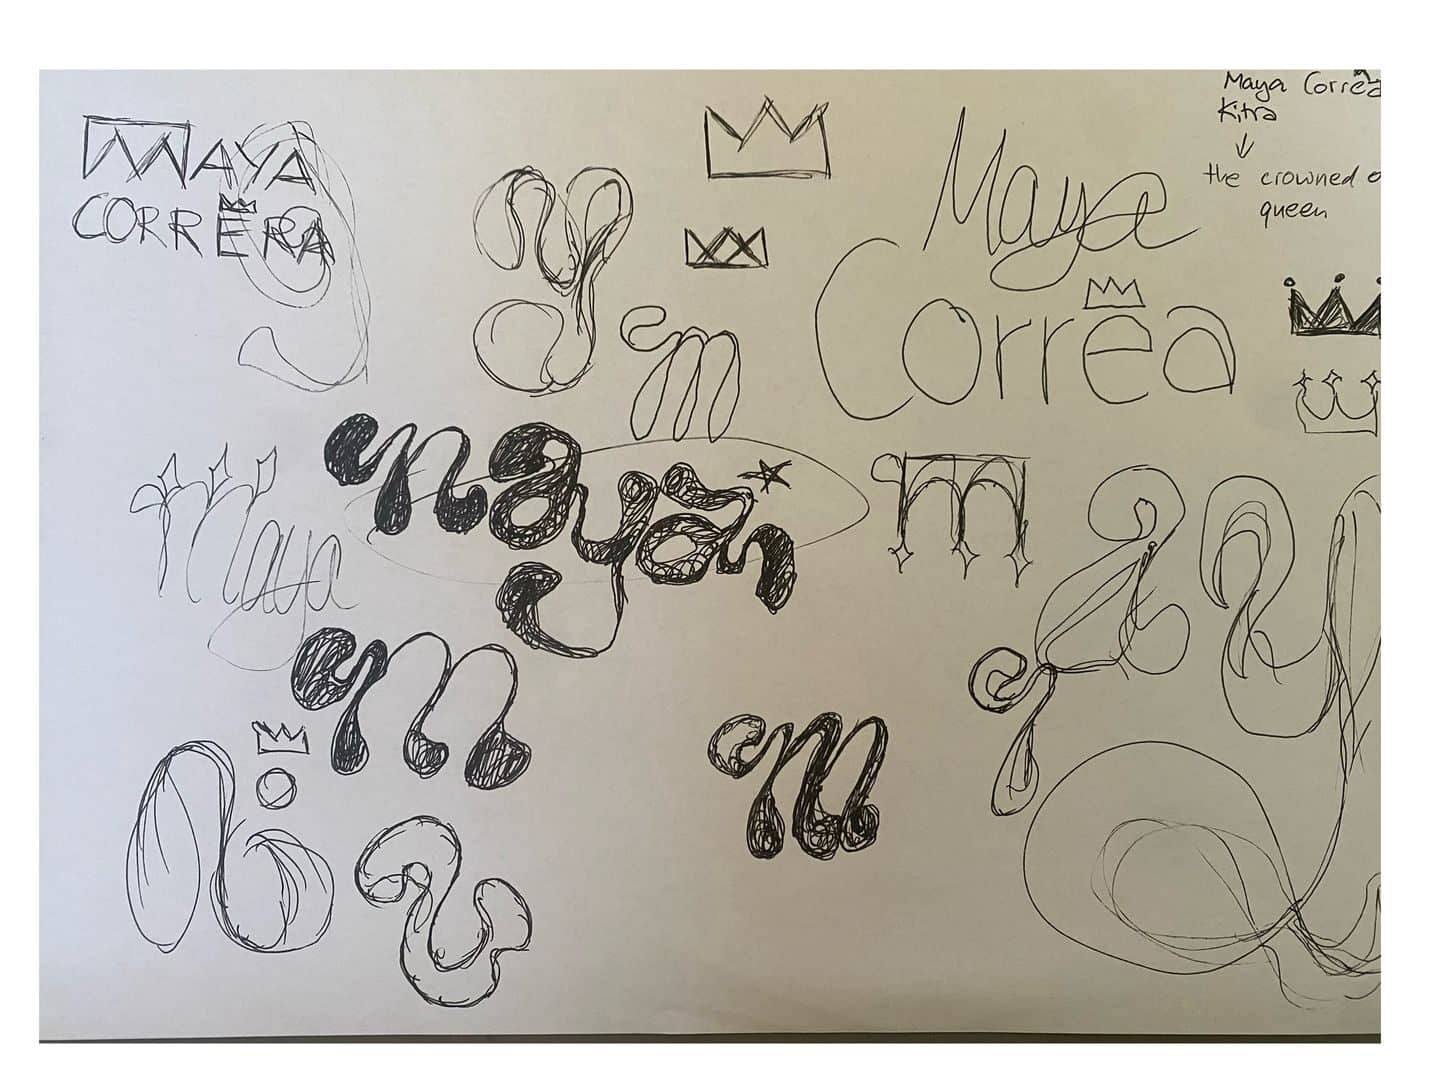 MAYA
CORRERA
Maya
Corrêa
Maya Corrêa
Kitra
↓
the crowned o
queen
y
m
Maya
mayan
m
m
m